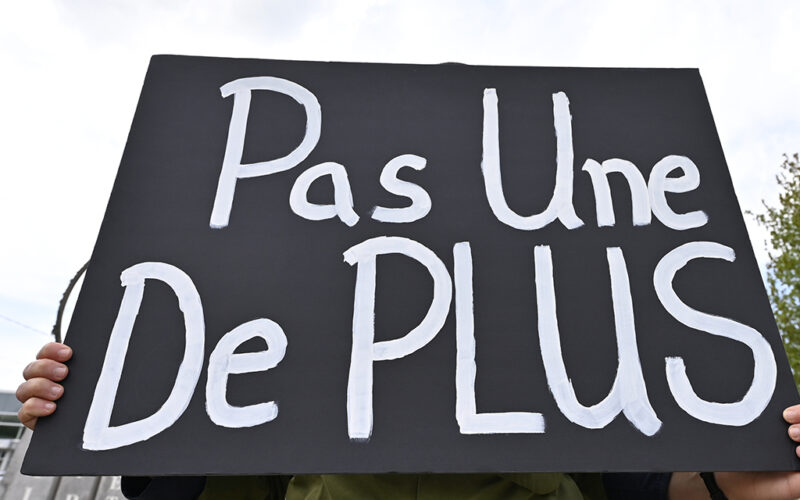 Pas Une
De PLUS